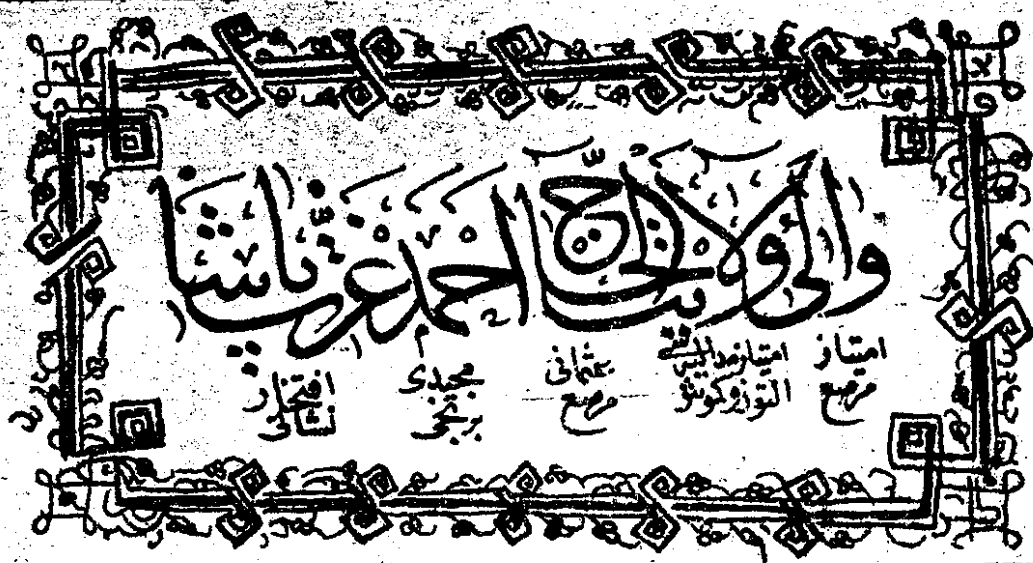 والی ولایت الحاج احمد عزت پاشا
امتیاز
مرصع
امتیاز مدالیه سی
التون و کموش
عثمانی
مرصع
مجیدی
برنجی
افتخار
نشانی